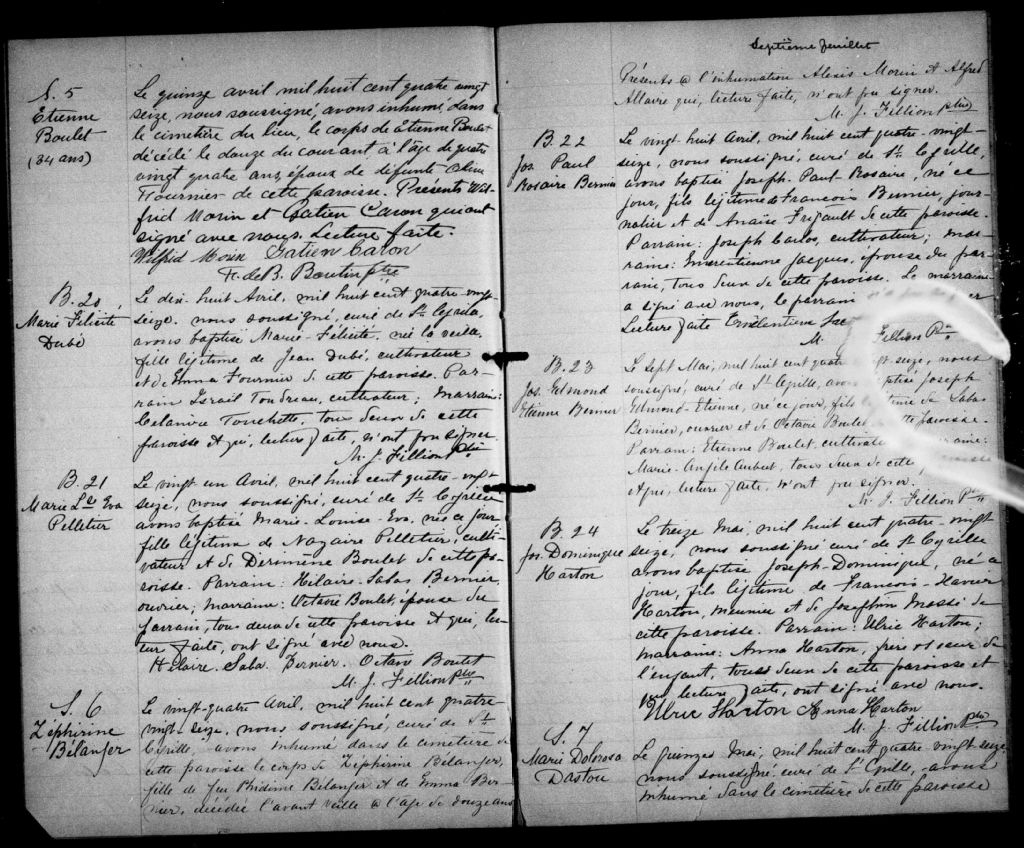 S. 5
Etienne
Boulet
(84 ans)
Le quinze avril mil huit cent quatre vingt
seize, nous soussigné, avons inhumé dans
le cimetière du lieu, le corps de Etienne Boulet
décédé le douze du courant, à l'âge de quatre
vingt quatre ans, époux de défunte
Fournier de cette paroisse. Présents Wil-
frid Morin et Gatien Caron qui ont
signé avec nous. Lecture faite.
Wilfrid Morin Gatien Caron
F. de B. Boutin ptre
B. 20
Marie Félicité
Dubé
Le dix-huit Avril, mil huit cent quatre-vingt-
seize, nous soussigné, curé de St Cyrille,
avons baptisé Marie-Félicité, née la veille,
fille légitime de Jean Dubé, cultivateur
et de Emma Fournier de cette paroisse. Par-
rain Israïl cultivateur; Marraine:
Touchette, tous deux de cette
paroisse et qui, lecture faite, n'ont pu signer.
M. J. Fillion Ptre
B. 21
Marie Lse Eva
Pelletier
Le vingt un Avril, mil huit cent quatre-vingt
seize, nous soussigné, curé de St Cyrille
avons baptisé Marie-Louise-Eva, née ce jour
fille légitime de Nazaire Pelletier, culti-
vateur et de Boulet de cette pa-
roisse. Parrain: Hilaire-Sabas Bernier,
ouvrier; marraine: Octavie Boulet, épouse du
parrain, tous deux de cette paroisse et qui, lec-
ture faite, ont signé avec nous.
Hilaire Saba. Bernier. Octavi Boulet
M. J. Fillion Ptre
S. 6
Zéphirine
Bélanger
Le vingt-quatre Avril, mil huit cent quatre
vingt-seize, nous soussigné, curé de St
Cyrille, avons inhumé dans le cimetière de
cette paroisse le corps de Zéphirine Bélanger,
fille de feu Bélanger et de Emma Ber-
nier, décédée l'avant veille @ l'âge de douze ans
Septième feuillet
Présents @ l'inhumation Alexis Morin et Alfred
Allaire qui, lecture faite, n'ont pu signer.
M. J. Fillion ptre
B. 22
Jos. Paul
Rosaire Bernier
Le vingt-huit Avril, mil huit cent quatre-vingt-
seize, nous soussigné, curé de St Cyrille,
avons baptisé Joseph-Paul-Rosaire, né ce
jour, fils légitime de Francois Bernier, jour-
nalier et de Anaïse Frigault de cette paroisse.
Parrain: Joseph Carlos, cultivateur; mar-
raine: Emérentienne Jacques, épouse du par-
rain, tous deux de cette paroisse. La marraine
a signé avec nous, le parrain
Lecture faite
M. J. Fillion Ptre
B. 23
Jos. Edmond
Etienne Bernier
Le Sept Mai, mil huit cent quatre vingt-seize, nous
soussigné, curé de St Cyrille, avons baptisé Joseph
Edmond-Etienne, né ce jour, fils légitime de Sabas
Bernier, ouvrier et de Octavie Boulet de cette paroisse.
Parrain: Etienne Boulet, cultivateur; marraine:
Marie-Angèle Aubert, tous deux de cette paroisse
et qui, lecture faite, n'ont pu signer.
M. J. Fillion Ptre
B. 24
Jos. Dominique
Harton
Le treize Mai, mil huit cent quatre-vingt
seize, nous soussigné curé de St Cyrille
avons baptisé Joseph-Dominique, né ce
jour, fils légitime de François-Xavier
Harton, meunier et de Josephine Massé de
cette paroisse. Parrain: Ulric Harton;
marraine: Anna Harton, frère et soeur de
l'enfant, tous deux de cette paroisse et
qui, lecture faite, ont signé avec nous.
Ulric Harton Anna Harton
M. J. Fillion Ptre
S. 7
Marie Dolorosa
Dastou
Le quinze Mai, mil huit cent quatre vingt-seize
nous soussigné, curé de St Cyrille, avons
inhumé dans le cimetière de cette paroisse